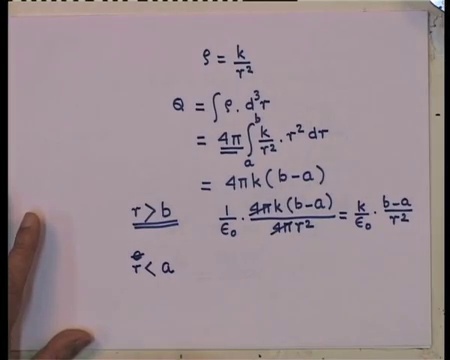 ρ = k/r²
Q = ∫ρ. d³r
= 4π ∫ₐᵇ k/r² · r² dr
= 4πk(b-a)
r > b 1/ε₀ · 4πk(b-a)/4πr² = k/ε₀ · b-a/r²
r < a